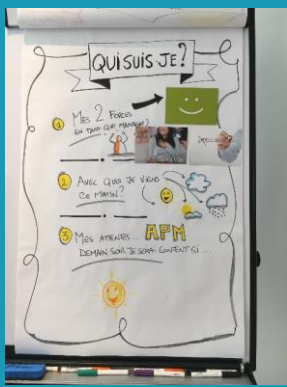 QUI SUIS-JE?
1 MES 2 FORCES
EN TANT QUE MANAGER?
2 AVEC QUOI JE VIENS
CE MATIN?
3 MES ATTENTES... APM
DEMAIN SOIR JE SERAI CONTENT SI...